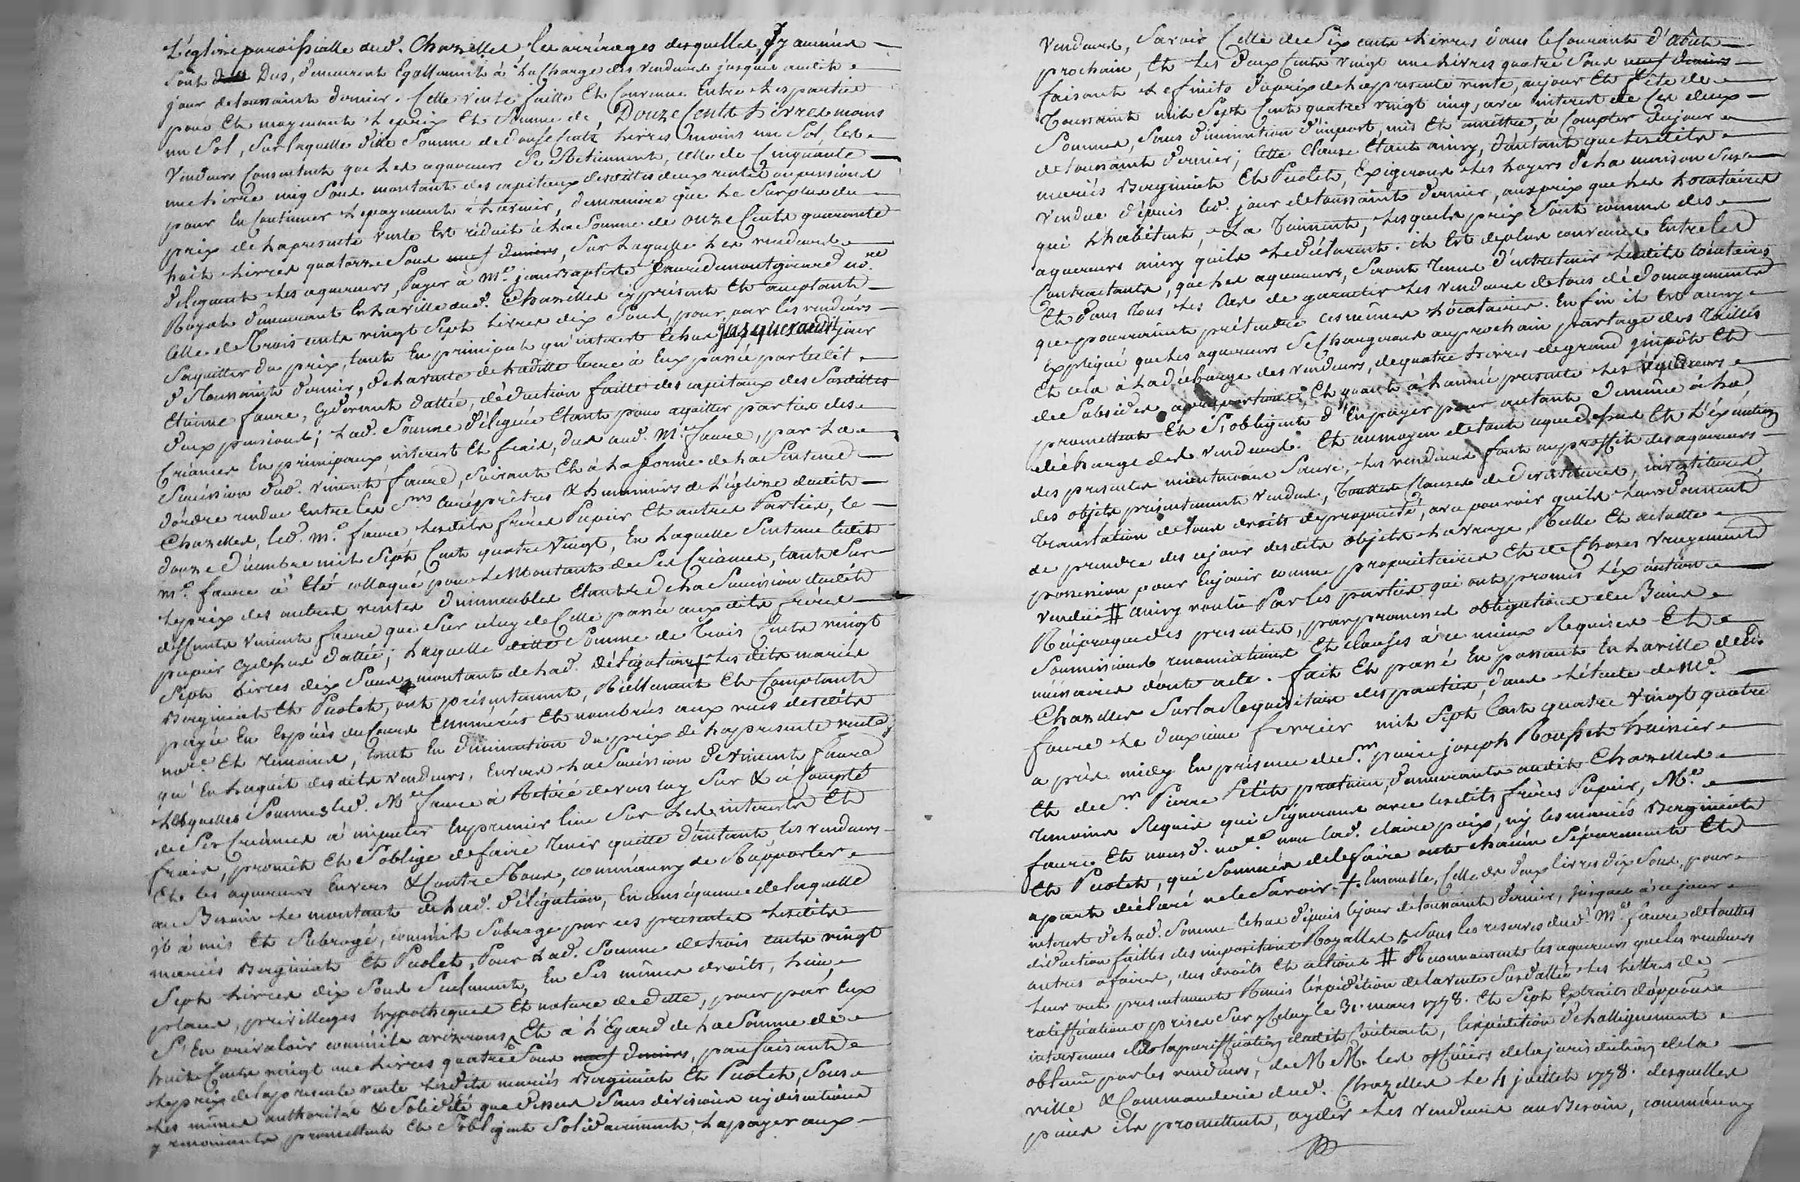 L'église paroissialle dud. Chazelles les arrérages desquelles, sy aucuns
sont dus, demeurent Egallement à la Charge des vendeurs jusques audit
jour de toussaints dernier. Cette vente faitte Et Convenue Entre les parties
pour Et moyenant le prix Et Somme de, Douze Cents Livres moins
un Sol, Sur laquelle dite Somme de douze cents livres moins un Sol les
Vendeurs Consentent que les aquereurs se Retiennent, celle de Cinquante
une livre cinq Sous montant des capitaux desdittes deux rentes ou pensions
pour En Continuer le payement à l'avenir, de maniere que le Surplus du
prix de la presente vente Est réduit à la Somme de onze Cents quarante
huit livres quatorze Sous neuf deniers, Sur laquelle les vendeurs
déleguent les aquereurs, Payer à Me. jean baptiste faure demontgirard nore.
Royal demeurant En la ville dud. Chazelles cy présent Et acceptant
celle de Trois cents vingt Sept livres dix Sous, pour, par les vendeurs
s'aquitter du prix, tant En principal qu'interet Echus jusques audit jour
de Toussaints dernier, de la vente de ladite terre à Eux passée par ledit
Etienne faure, cydevant dattée, déduction faitte des capitaux des Susdittes
deux pensions; lad. Somme déléguée Etant pour aquitter partie des
Créances En principaux interest Et frais, dus aud. Me. faure, par la
Succession dud. vincent faure, Suivant Et à la forme de la Sentence
d'ordre rendue Entre les Srs. Curé prêtres & Luminiers de l'église dudit
Chazelles, led. Me. faure, lesdits frères Papier Et autres Parties, le
douze décembre mil Sept Cents quatre vingt, En laquelle Sentence ledit
Me. faure à Eté colloqué pour le Montant de Ses Créances, tant Sur
le prix des autres ventes d'immeubles Etants de la Succession dudit
deffunt Vincent faure que Sur celuy de Celle passée auxdits frères
papier cydessus dattée; laquelle ditte Somme de Trois Cents vingt
Sept livres dix Sous montant de lad. Délégation + lesdits mariés
Berginiat Et Puolet, ont présentement, Réellement Et Comptant
payée En Espèces de Cours Emmerés Et nombrés aux vues desdits
nore. Et témoins, tant En diminution du prix de la presente vente
qu'En l'aquit desdits vendeurs, Envers la Succession de vincent faure
Lesquelles Sommes led. Me. faure à Retiré devers luy Sur & à Compte
de Ses Créances à imputer En premier lieu Sur les interests Et
frais, promet Et S'oblige de faire tenir quitte d'autant les vendeurs
Et les aquereurs Envers & Contre Tous, comm'aussy de Rapporter
au Besoin le montant de lad. délégation, En conséquence de laquelle
il à mis Et Subrogé, comm'il Subroge par ces presentes lesdits
mariés Berginiat Et Puolet, Pour lad. Somme de trois cents vingt
Sept livres dix Sous Seulement, En Ses mêmes droits, lieu,
place, privilleges hypotheques Et nature de dette, pour par Eux
S'En prévaloir comm'ils aviseront, Et à l'Egard de la Somme de
huit Cents vingt une livres quatre Sous neuf deniers, parfaisant
le prix de la presente vente lesdits mariés Berginiat Et Puolet, Sous
les mêmes authorités & Solidité que dessus Sans division ny discution
y renonçants promettent Et S'obligent Solidairement, la payer aux
vendeurs, Savoir Celle de Six cents livres dans le Courant d'aout
prochain, Et les deux Cents vingt une livres quatre Sous neuf deniers
faisants le finito du prix de la presente vente, au jour Et fête de
Toussaints mil Sept Cents quatre vingt cinq, avec interest de Ces deux
Sommes, Sans diminution d'import, mis Et amettre, à Compter du jour
de toussaints dernier; Cette Clause Etant ainsy, d'autant que lesdits
mariés Berginiat Et Puolet, Exigeront les loyers de la maison Sus
vendue depuis led. jour de toussaints dernier, aux prix que les Locataires
qui l'habitent, La Tiennent, lesquels prix Sont connus des
aquereurs ainsy qu'ils le déclarent. il Est de plus convenu Entre les
Contractants, que les aquereurs, Seront tenus d'entretenir lesdits locataires
Et dans tous les Cas de garantir les vendeurs de tous dédomagements
que pourroient prétendre ces mêmes locataires. En fin il Est aussy
Expliqué que les aquereurs Se Chargeront au prochain partage des Tailles
Et cela à la décharge des vendeurs, de quatre livres de grand impôt Et
de Subsides à proportion, Et quant à l'année presente les aquereurs
promettent Et S'obligent d'En payer pour autant de même à la
décharge des vendeurs. Et au moyen de tout ce que dessus Et l'Exécution
des presentes intervenant Saure, les vendeurs font au proffit des aquereurs
des objets présentement vendus, Touttes clauses de dévestiture, investiture,
Translation de tous droits de propriété, avec pouvoir qu'ils leurs donnent
de prendre dès ce jour desdits objets la vraye, Réelle Et actuelle
possession pour En jouir comme propriétaires Et de Choses vrayement
vendües # ainsy voulu Par les parties qui ont promis l'Exécution
Réciproque des presentes, par promesses obligations de Biens
Soumissions renonciations Et clauses à ce mieux Requises Et
nécessaires dont acte. fait Et passé En passant En la ville dud.
Chazelles Sur la Réquisition des parties, dans l'étude de Me.
faure le deuxieme fevrier mil Sept Cents quatre vingt quatre
après midy En présence de Sr. pierre joseph Rousset huissier
Et de Sr. Pierre Petit praticien, demeurants audit Chazelles
témoins Requis qui Signeront avec lesdits frères Papier, Me.
faure Et nousd. nore. non lad. claire poix, ny les mariés Berginiat
Et Puolet, qui Sommés de le faire ont chacun Séparément Et
apart déclaré ne le Savoir. + Ensemble, Celle de deux livres dix Sous, pour
interest de lad. Somme Echus depuis le jour de toussaints dernier, jusques à ce jour
déduction faitte des impositions Royalles + Sous les reserves dud. Me. faure de touttes
autres à faire, ses droits Et actions # Reconnoissent les aquereurs que les vendeurs
leur ont presentement Remis l'expédition de la vente Susdattée les lettres de
ratiffications prises Sur y Celuy le 31. mars 1778. Et Sept Extraits d'opposition
intervenus dela purification dudit Contrat, l'expédition de l'allignement
obtenu par les vendeurs, de M.M. les officiers de la jurisdiction de la
ville & Commanderie dud. Chazelles le 4 juillet 1778. desquelles
pièces ils promettent, ayder les vendeurs au Besoin, comm'aussy